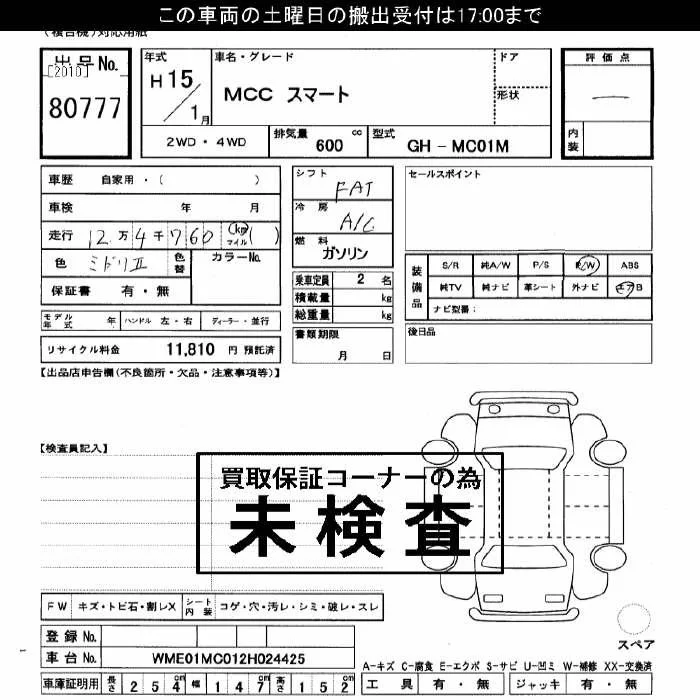 この車両の土曜日の搬出受付は17:00まで
(複合機)対応用紙
出品No. [2010] 80777
年式 H15/1月
車名・グレード MCC スマート
ドア
形状
評価点 —
内装
2WD・4WD 排気量 600 cc 型式 GH-MC01M
車歴 自家用・( )
車検 年 月
走行 12万4千760 (km マイル)( )
色 ミドリⅡ 色替 カラーNo.
保証書 有・無
モデル年式 年 ハンドル 左・右 ディーラー・並行
リサイクル料金 11,810 円 預託済
シフト FAT
冷房 A/C
燃料 ガソリン
乗車定員 2 名
積載量 kg
総重量 kg
書類期限 月 日
セールスポイント
装備品 S/R 純A/W P/S P/W ABS
純TV 純ナビ 革シート 外ナビ エアB
ナビ型番:
後日品
【出品店申告欄(不良箇所・欠品・注意事項等)】
【検査員記入】
買取保証コーナーの為
未検査
FW キズ・トビ石・割レX シート内装 コゲ・穴・汚レ・シミ・破レ・スレ
登録No.
車台No. WME01MC012H024425
車庫証明用 長さ 254cm 幅 147cm 高さ 152cm
スペア
A-キズ C-腐食 E-エクボ S-サビ U-凹ミ W-補修 XX-交換済
工具 有・無 ジャッキ 有・無